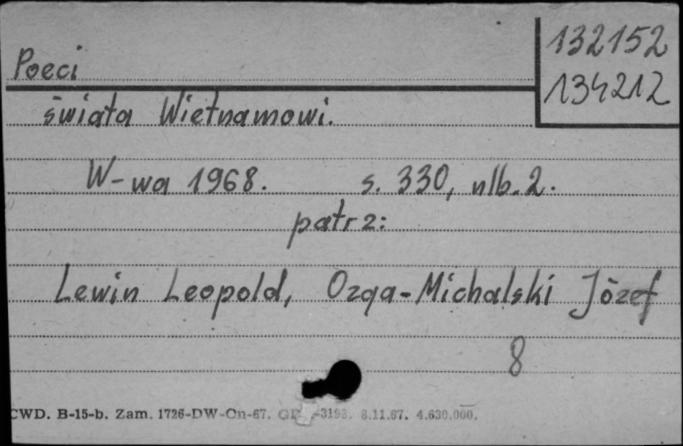 132152
Poeci
134212
świata Wietnamowi.
W-wa 1968. s. 330, nlb. 2.
patrz:
Lewin Leopold, Ozga-Michalski Józef
8
CWD. B-15-b. Zam. 1726-DW-On-67. 8.11.67. 4.630.000.